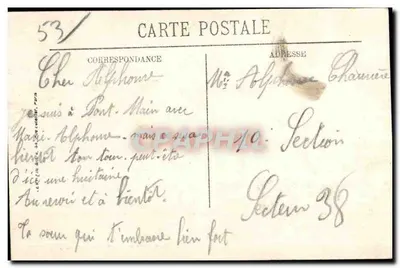 53/
CARTE POSTALE
CORRESPONDANCE
ADRESSE
Cher Alphonse
je suis à Pont-Main avec
Marie-Alphonse mais
bientôt ton tour peut-être
d'ici une huitaine
Au revoir et à bientôt
Ta sœur qui t'embrasse bien fort
Alphonse
10 Section
Secteur 38